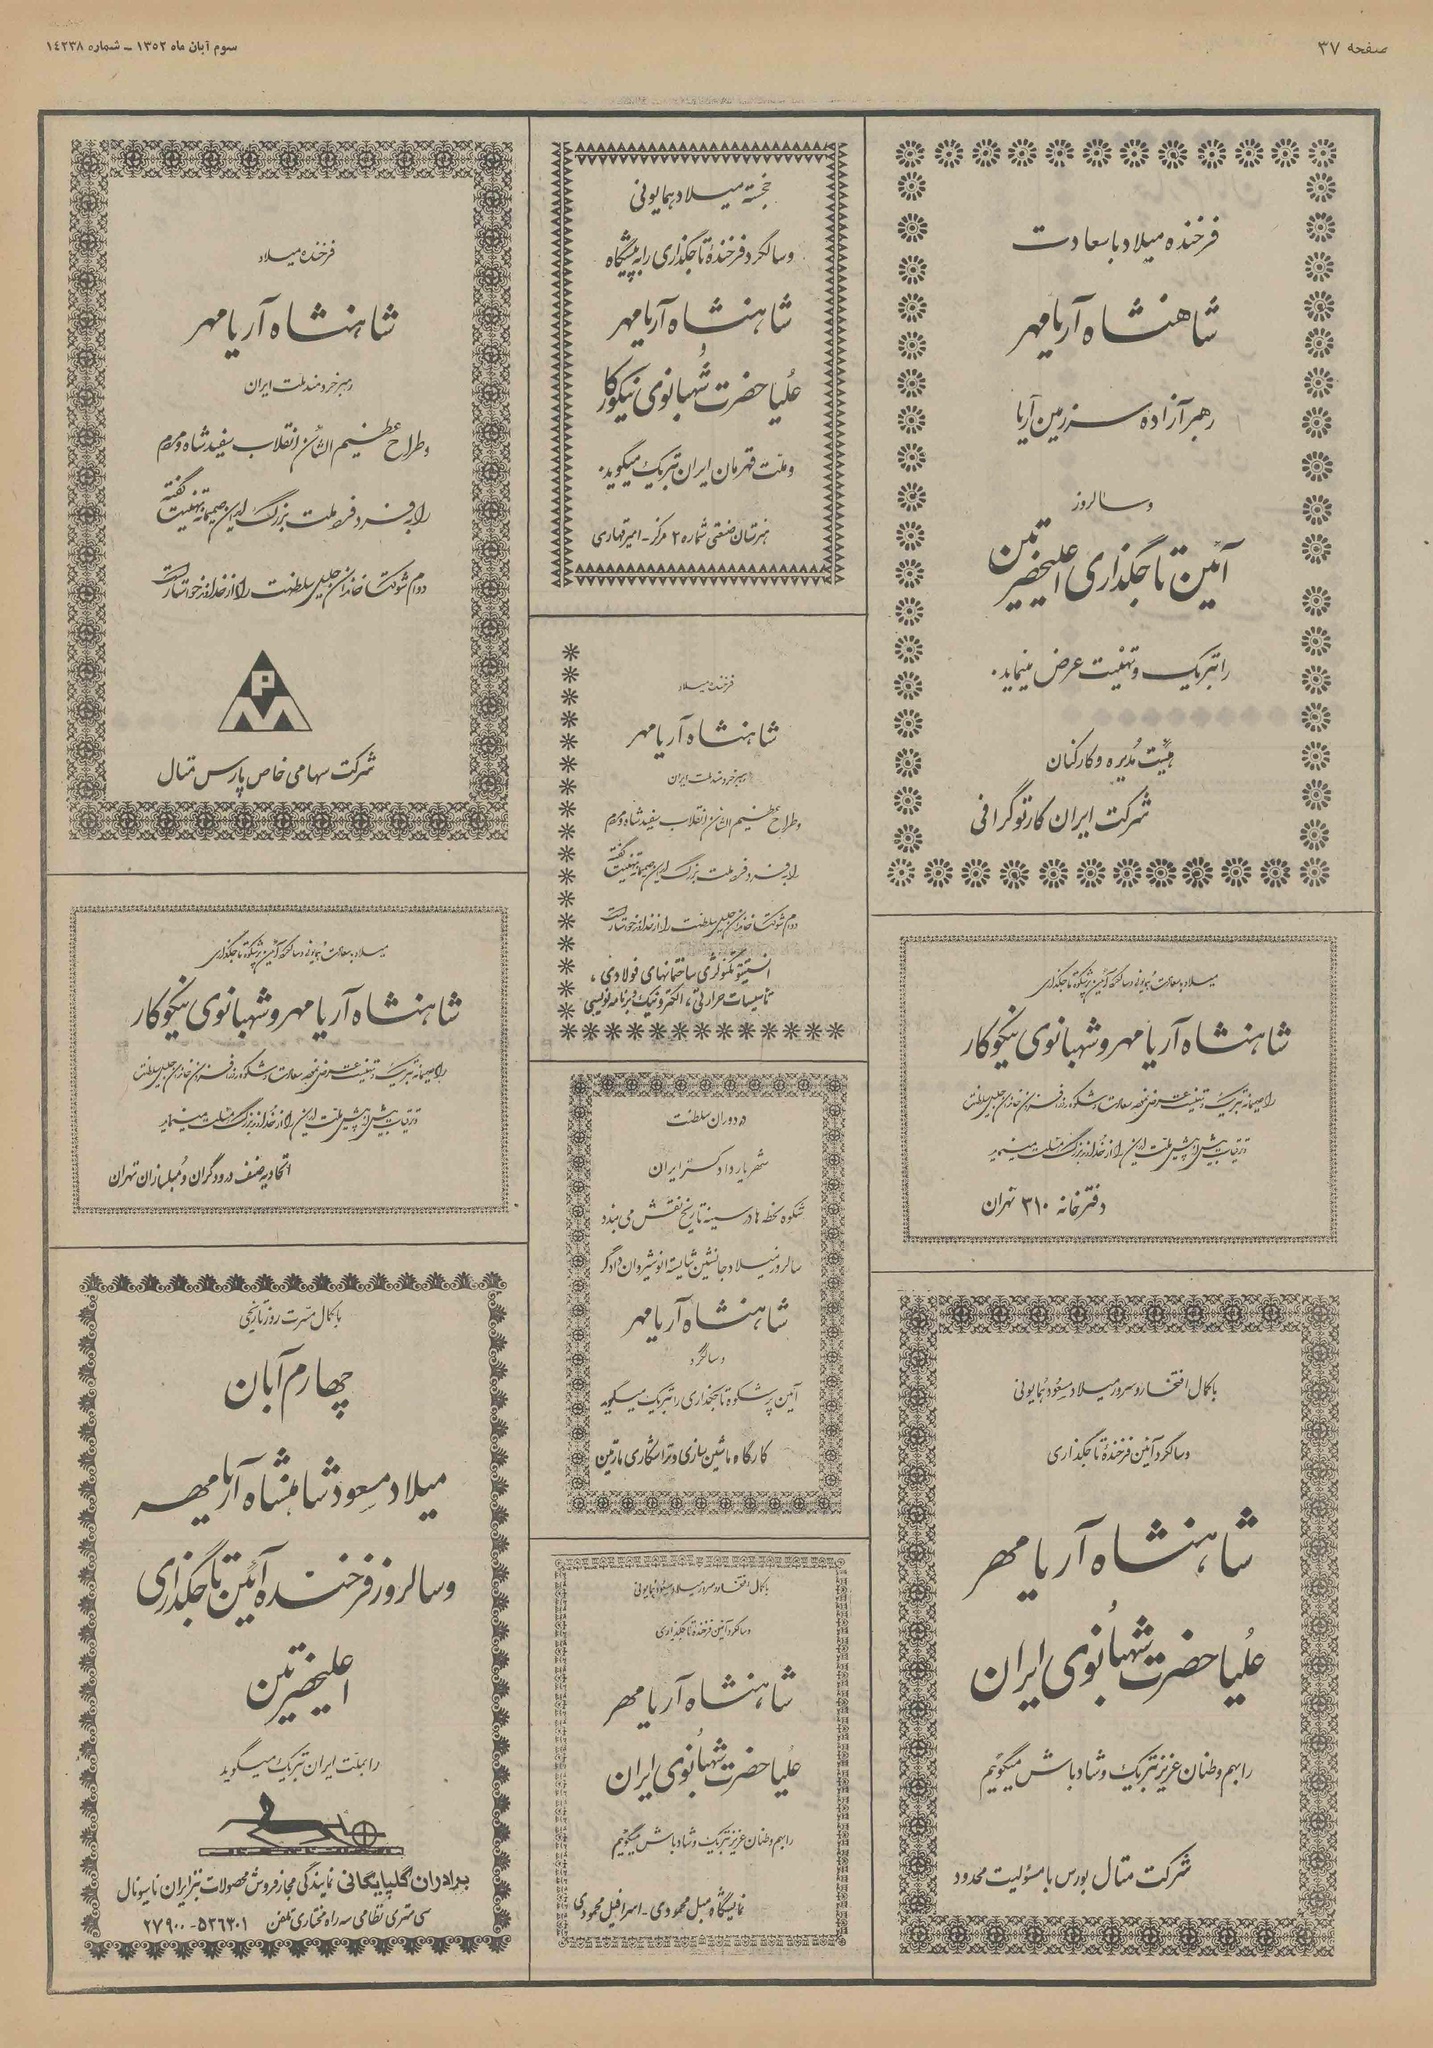 صفحه ۳۷
سوم آبان ماه ۱۳۵۲ - شماره ۱۴۲۳۸
فرخنده میلاد با سعادت
شاهنشاه آریامهر
رهبر آزاده سرزمین آریا
و سالروز
آئین تاجگذاری اعلیحضرتین
را تبریک و تهنیت عرض مینماید.
هیئت مدیره و کارکنان
شرکت ایران کارتوگرافی
میلاد با سعادت همایونی و سالگرد آئین پرشکوه تاجگذاری
شاهنشاه آریامهر و شهبانوی نیکوکار
را صمیمانه تبریک و تهنیت عرض نموده سعادت و شکوه روزافزون خاندان جلیل سلطنت
و ترقیات بیش از پیش ملت ایران را از خداوند بزرگ مسئلت مینماید
دفترخانه ۳۱۰ تهران
با کمال افتخار و سرور میلاد مسعود همایونی
و سالگرد آئین فرخنده تاجگذاری
شاهنشاه آریامهر
علیاحضرت شهبانوی ایران
را بهم وطنان عزیز تبریک و شادباش میگوئیم
شرکت متال بورس با مسئولیت محدود
خجسته میلاد همایونی
و سالگرد فرخندهٔ تاجگذاری را به پیشگاه
شاهنشاه آریامهر
و
علیاحضرت شهبانوی نیکوکار
و ملت قهرمان ایران تبریک میگوید.
هنرستان صنعتی شماره ۲ مرکز - امیر قهاری
فرخنده میلاد
شاهنشاه آریامهر
رهبر خردمند ملت ایران
و طراح عظیم الشأن انقلاب سفید شاه و مردم
را به فرد فرد ملت بزرگ ایران صمیمانه تهنیت گفته
دوام شوکت خاندان جلیل سلطنت را از خداوند خواستار است
انستیتو تکنولژی ساختمانهای فولادی،
تأسیسات حرارتی، الکترونیک و برنامه نویسی
در دوران سلطنت
شهریار دادگستر ایران
شکوه لحظه ها در سینه تاریخ نقش می بندد
سالروز میلاد جانشین شایسته انوشیروان دادگر
شاهنشاه آریامهر
و سالگرد
آئین پرشکوه تاجگذاری را تبریک میگوید
کارگاه ماشین سازی و تراشکاری مارتین
با کمال افتخار و سرور میلاد مسعود همایونی
و سالگرد آئین فرخنده تاجگذاری
شاهنشاه آریامهر
علیاحضرت شهبانوی ایران
را بهم وطنان عزیز تبریک و شادباش میگوئیم
نمایشگاه مبل محمودی - اسرافیل محمودی
فرخنده میلاد
شاهنشاه آریامهر
رهبر خردمند ملت ایران
و طراح عظیم الشأن انقلاب سفید شاه و مردم
را به فرد فرد ملت بزرگ ایران صمیمانه تهنیت گفته
دوام شوکت خاندان جلیل سلطنت را از خداوند خواستار است
P
M
شرکت سهامی خاص پارس متال
میلاد با سعادت همایونی و سالگرد آئین پرشکوه تاجگذاری
شاهنشاه آریامهر و شهبانوی نیکوکار
را صمیمانه تبریک و تهنیت عرض نموده سعادت و شکوه روزافزون خاندان جلیل سلطنت
و ترقیات بیش از پیش ملت ایران را از خداوند بزرگ مسئلت مینماید
اتحادیه صنف درودگران و مبلسازان تهران
با کمال مسرت روز تاریخی
چهارم آبان
میلاد مسعود شاهنشاه آریامهر
و سالروز فرخنده آئین تاجگذاری
اعلیحضرتین
را بملت ایران تبریک میگوید
برادران گلپایگانی نمایندگی مجاز فروش محصولات جنرال ایران ناسیونال
سی متری نظامی سه راه مختاری تلفن ۵۳۶۲۰۱-۲۷۹۰۰